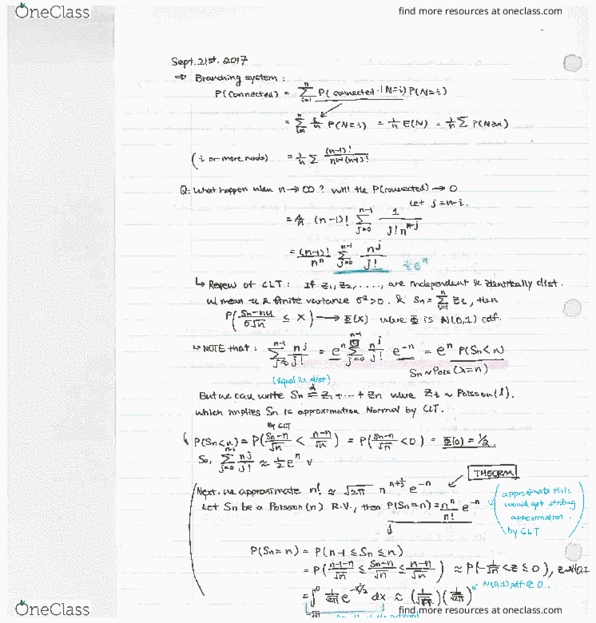 OneClass
find more resources at oneclass.com
Sept. 21st. 2017
⇒ Branching system:
P(connected) = Σ P(connected | N=i) P(N=i)
= Σ i/n P(N=i) = 1/n E(N) = 1/n Σ P(N≥i)
(i or more nodes) = 1/n Σ
Q: What happen when n → ∞? Will the P(connected) → 0
Let j = n-i.
(n-1)! Σ 1 / j! n^{n-j}
= (n-1)!/n^n Σ n^j/j!
↳ Review of CLT: If Z1, Z2, ...., are independent & identically dist.
w/ mean u & finite variance σ²>0. & Sn = Σ Zi, then
P(Sn-nu / σ√n ≤ X) → Φ(X) where Φ is N(0,1) cdf.
↳ NOTE that: Σ n^j/j! = e^n Σ n^j/j! e^{-n} = e^n P(Sn<n)
Sn ~ Pois(λ=n)
(equal in dist)
But we can write Sn =d Z1+...+Zn where Zi ~ Poisson(1).
which implies Sn is approximation Normal by CLT.
by CLT
↳ P(Sn<n) = P(Sn-n/√n < n-n/√n) = P(Sn-n/√n < 0) = Φ(0) = 1/2
So, Σ n^j/j! ≈ 1/2 e^n
THEOREM
Next, we approximate n! ≈ √2π n^{n+1/2} e^{-n}
Let Sn be a Poisson(n) R.V., then P(Sn=n) = n^n/n! e^{-n}
(approximate this
would get stirling
approximation
by CLT)
P(Sn=n) = P(n-1 ≤ Sn ≤ n)
= P(n-1-n/√n ≤ Sn-n/√n ≤ n-n/√n) ≈ P(-1/√n < Z ≤ 0), Z~N(0,1)
N(0,1) pdf @ 0.
= ∫ 1/√2π e^{-x²/2} dx ≈ (1/√2π)(1/√n)
OneClass
find more resources at oneclass.com